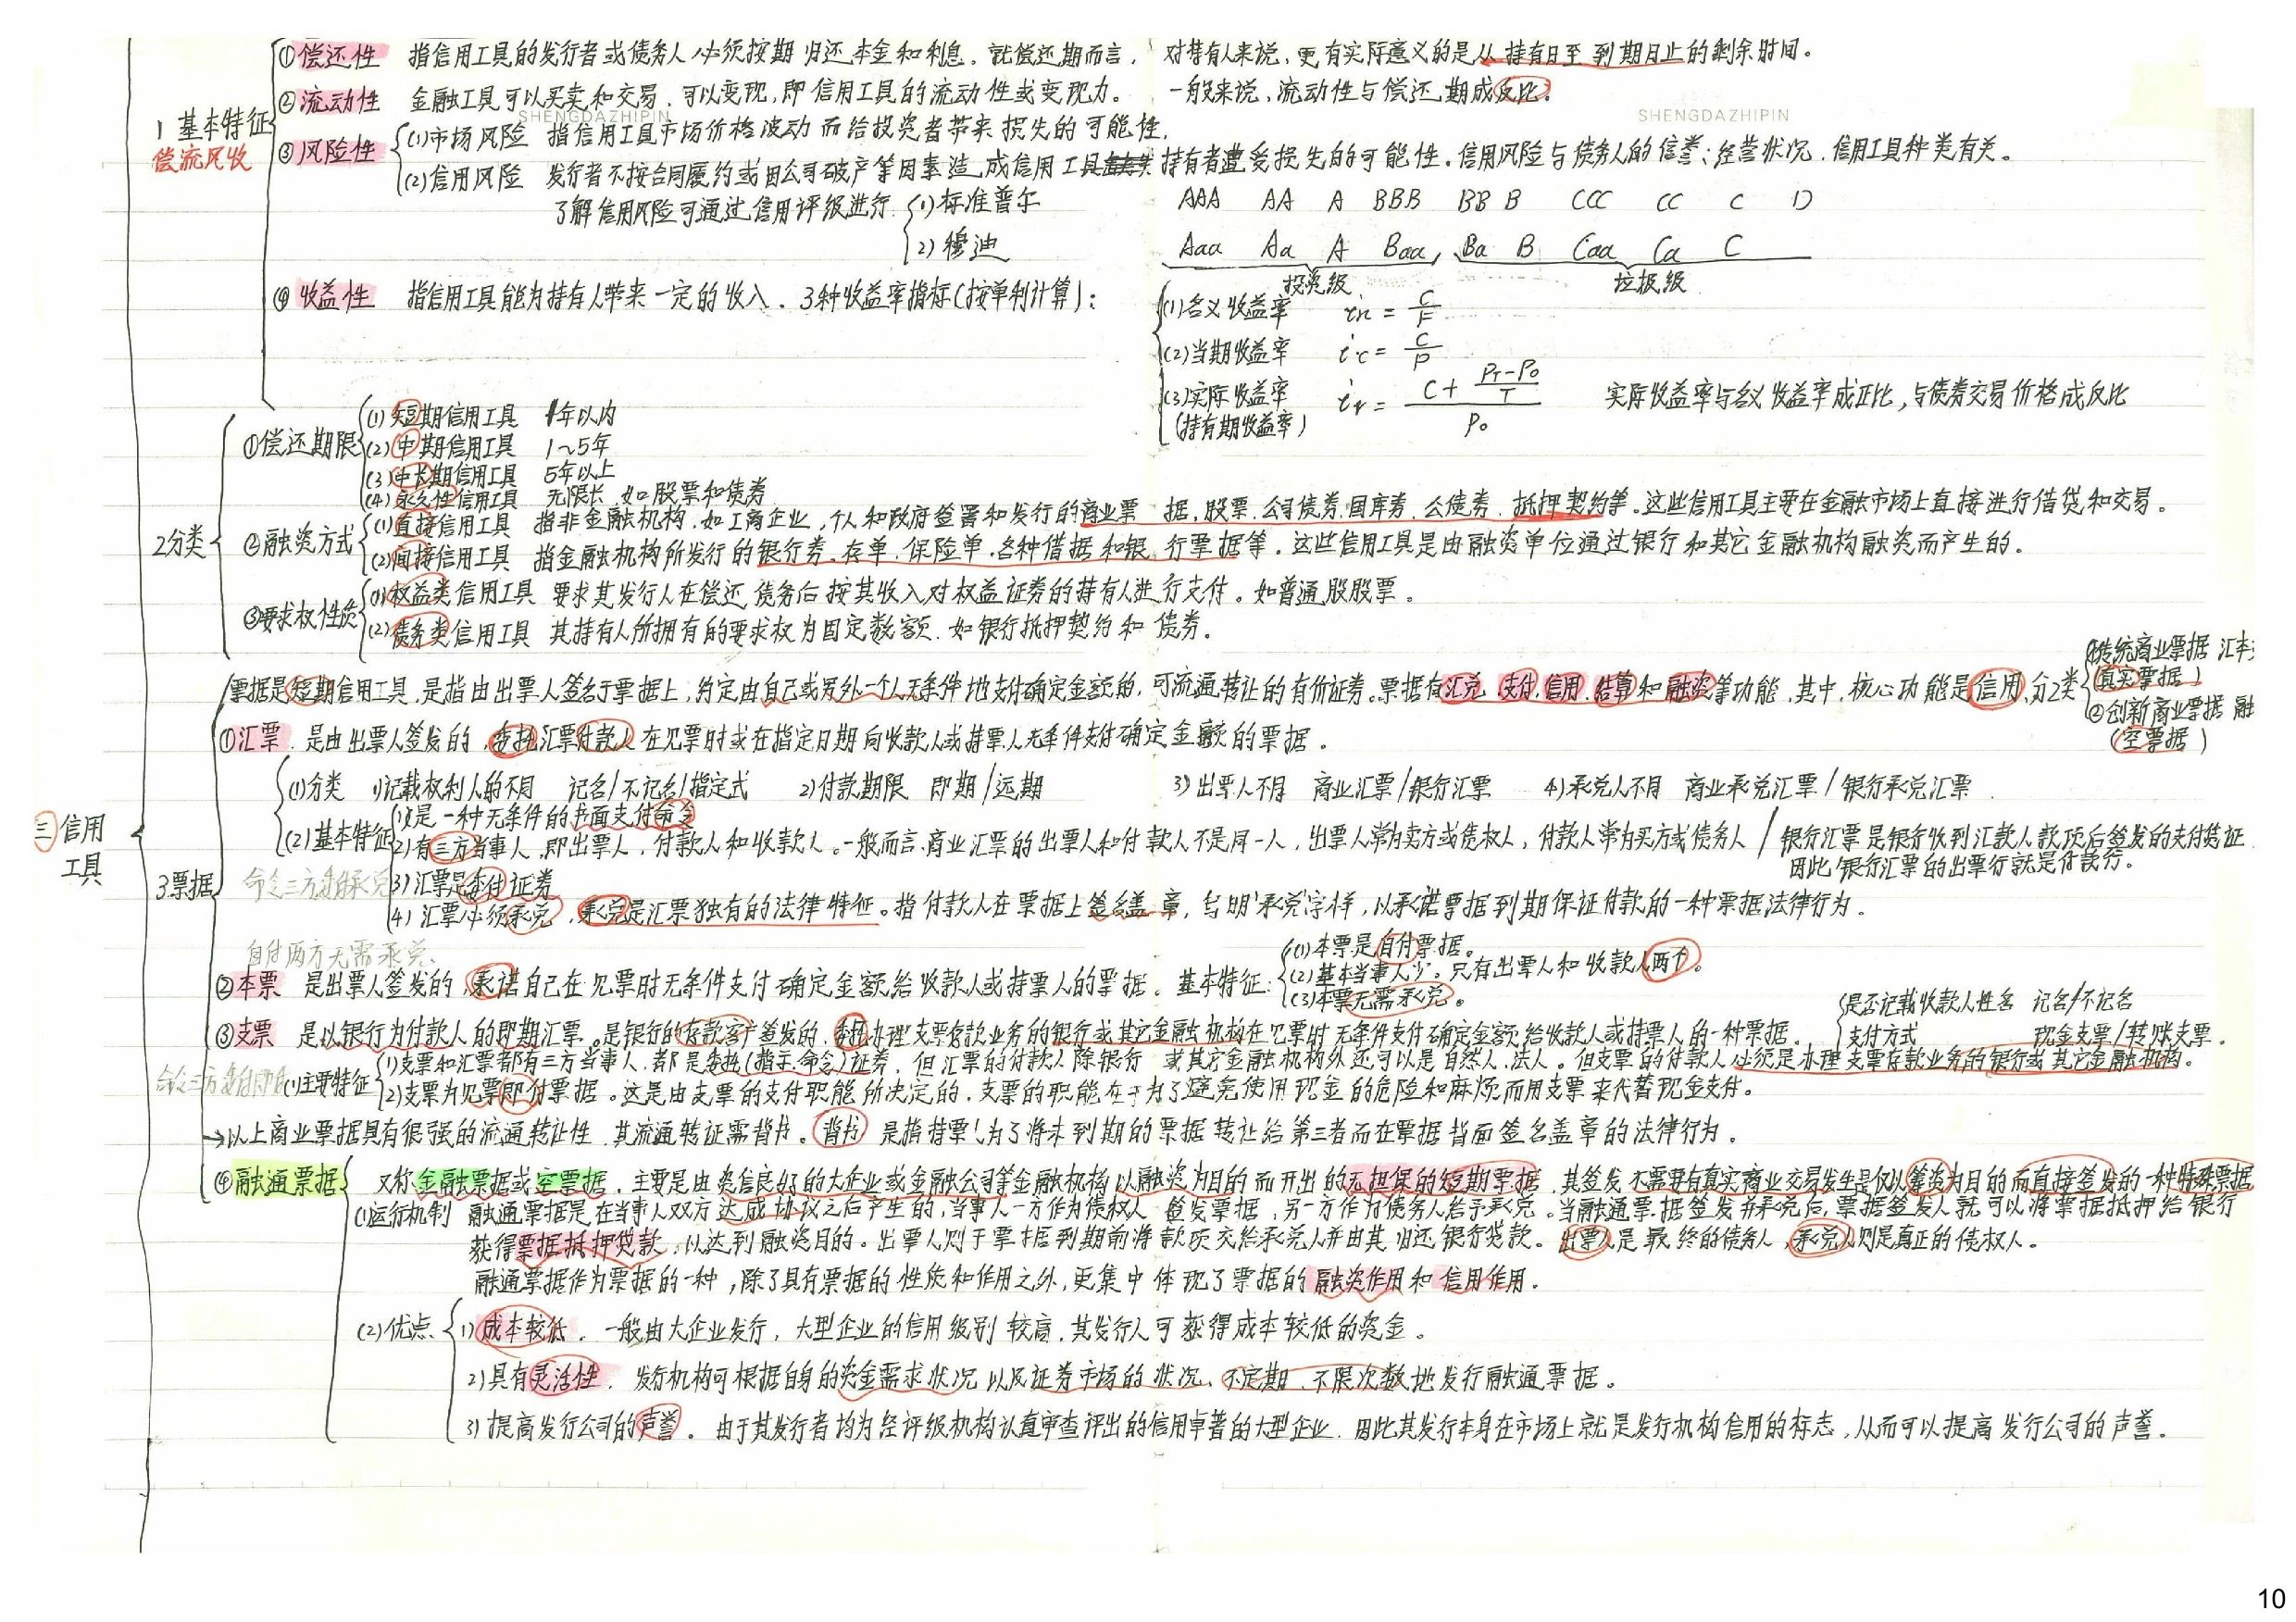 ①偿还性 指信用工具的发行者或债务人必须按期归还本金和利息。就偿还期而言，对持有人来说，更有实际意义的是从持有日至到期日止的剩余时间。
②流动性 金融工具可以买卖和交易，可以变现，即信用工具的流动性或变现力。一般来说，流动性与偿还期成反比。
SHENGDAZHIPIN SHENGDAZHIPIN
1 基本特征
偿流风收
③风险性
(1)市场风险 指信用工具市场价格波动而给投资者带来损失的可能性，
(2)信用风险 发行者不按合同履约或因公司破产等因素造成信用工具持有者遭受损失的可能性。信用风险与债务人的信誉、经营状况、信用工具种类有关。
了解信用风险可通过信用评级进行
(1)标准普尔 AAA AA A BBB BB B CCC CC C D
(2)穆迪 Aaa Aa A Baa, Ba B Caa Ca C
投资级 垃圾级
④收益性 指信用工具能为持有人带来一定的收入。3种收益率指标(按单利计算)：
(1)名义收益率 in = C/F
(2)当期收益率 ic = C/P
(3)实际收益率 ir = (C + (PT-P0)/T)/P0 实际收益率与名义收益率成正比，与债券交易价格成反比
(持有期收益率)
2分类
①偿还期限
(1)短期信用工具 1年以内
(2)中期信用工具 1~5年
(3)中长期信用工具 5年以上
(4)永久性信用工具 无限长 如股票和债券
②融资方式
(1)直接信用工具 指非金融机构，如工商企业，个人和政府签署和发行的商业票据，股票、公司债券、国库券、公债券、抵押契约等。这些信用工具主要在金融市场上直接进行借贷和交易。
(2)间接信用工具 指金融机构所发行的银行券、存单、保险单、各种借据和银行票据等。这些信用工具是由融资单位通过银行和其它金融机构融资而产生的。
③要求权性质
(1)权益类信用工具 要求其发行人在偿还债务后按其收入对权益证券的持有人进行支付。如普通股股票。
(2)债务类信用工具 其持有人所拥有的要求权为固定数额，如银行抵押契约和债券。
三信用
工具
3票据
票据是短期信用工具，是指由出票人签名于票据上，约定由自己或另外一个人无条件地支付确定金额的，可流通转让的有价证券。票据有汇兑、支付、信用、结算和融资等功能，其中，核心功能是信用，分2类
①传统商业票据 汇本
(真实票据)
②创新商业票据 融
(空票据)
①汇票 是由出票人签发的，委托汇票付款人在见票时或在指定日期向收款人或持票人无条件支付确定金额的票据。
(1)分类 1)记载权利人的不同 记名/不记名/指定式 2)付款期限 即期/远期 3)出票人不同 商业汇票/银行汇票 4)承兑人不同 商业承兑汇票/银行承兑汇票
(2)基本特征
1)是一种无条件的书面支付命令
2)有三方当事人，即出票人，付款人和收款人。一般而言，商业汇票的出票人和付款人不是同一人，出票人常为卖方或债权人，付款人常为买方或债务人/银行汇票是银行收到汇款人款项后签发的支付凭证
因此，银行汇票的出票行就是付款行。
3)汇票是委付证券
4)汇票必须承兑，承兑是汇票独有的法律特征。指付款人在票据上签名盖章，写明'承兑'字样，以承诺票据到期保证付款的一种票据法律行为。
自付两方无需承兑、
②本票 是出票人签发的，承诺自己在见票时无条件支付确定金额给收款人或持票人的票据。基本特征：
(1)本票是自付票据。
(2)基本当事人少。只有出票人和收款人两个。
(3)本票无需承兑。
③支票 是以银行为付款人的即期汇票。是银行的存款客户签发的，委托办理支票存款业务的银行或其它金融机构在见票时无条件支付确定金额给收款人或持票人的一种票据。
是否记载收款人姓名 记名/不记名
支付方式 现金支票/转账支票。
(1)主要特征
1)支票和汇票都有三方当事人，都是委托(指示、命令)证券，但汇票的付款人除银行或其它金融机构外还可以是自然人、法人。但支票的付款人必须是办理支票存款业务的银行或其它金融机构。
2)支票为见票即付票据。这是由支票的支付职能所决定的，支票的职能在于为了避免使用现金的危险和麻烦而用支票来代替现金支付。
→以上商业票据具有很强的流通转让性，其流通转证需背书。背书 是指持票人为了将未到期的票据转让给第三者而在票据背面签名盖章的法律行为。
④融通票据 又称金融票据或空票据，主要是由资信良好的大企业或金融公司等金融机构以融资为目的而开出的无担保的短期票据，其签发不需要有真实商业交易发生是仅以筹资为目的而直接签发的一种特殊票据
(1)运行机制 融通票据是在当事人双方达成协议之后产生的，当事人一方作为债权人签发票据，另一方作为债务人给予承兑。当融通票据签发并承兑后，票据签发人就可以将票据抵押给银行
获得票据抵押贷款，以达到融资目的。出票人则于票据到期前将款项交给承兑人并由其归还银行贷款。出票人是最终的债务人，承兑人则是真正的债权人。
融通票据作为票据的一种，除了具有票据的性质和作用之外，更集中体现了票据的融资作用和信用作用。
(2)优点
1)成本较低。一般由大企业发行，大型企业的信用级别较高，其发行人可获得成本较低的资金。
2)具有灵活性。发行机构可根据自身的资金需求状况以及证券市场的状况、不定期、不限次数地发行融通票据。
3)提高发行公司的声誉。由于其发行者均为经评级机构认真审查评出的信用卓著的大型企业，因此其发行本身在市场上就是发行机构信用的标志，从而可以提高发行公司的声誉。
10